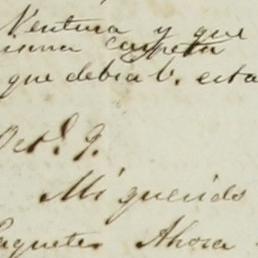 Ventura y que
misma carpeta
que debia V. esta
Oct.e 9.
Mi querido
Paquete. Ahora